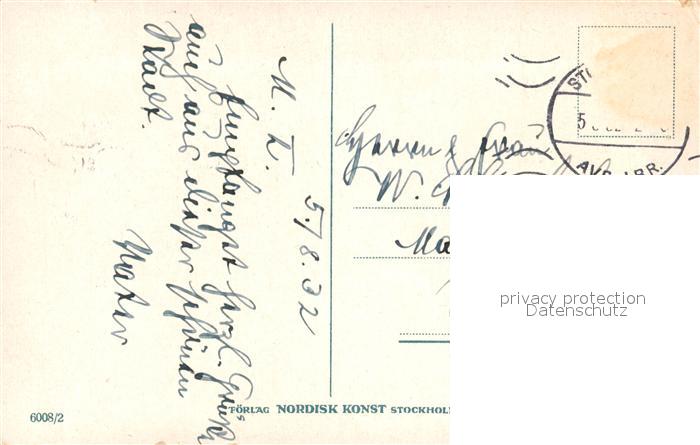 5./8.32
M. L.
Empfanget herzl. Grüße
auch aus dieser schönen
Stadt.
Vater
Herrn & Frau
W.
Ma
ST
5
AVG. LBR.
privacy protection
Datenschutz
6008/2
FÖRLAG NORDISK KONST STOCKHOL